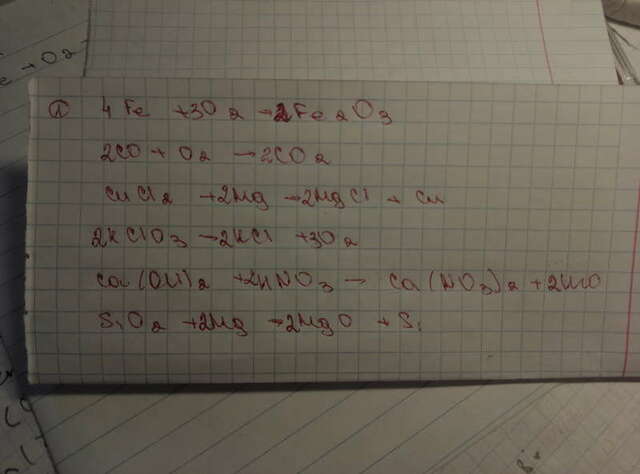 ① 4Fe +3O2 → 2Fe2O3
2CO + O2 → 2CO2
CuCl2 +2Mg → 2MgCl + Cu
2KClO3 → 2KCl +3O2
Ca(OH)2 +2HNO3 → Ca(NO3)2 +2H2O
SiO2 +2Mg → 2MgO + Si